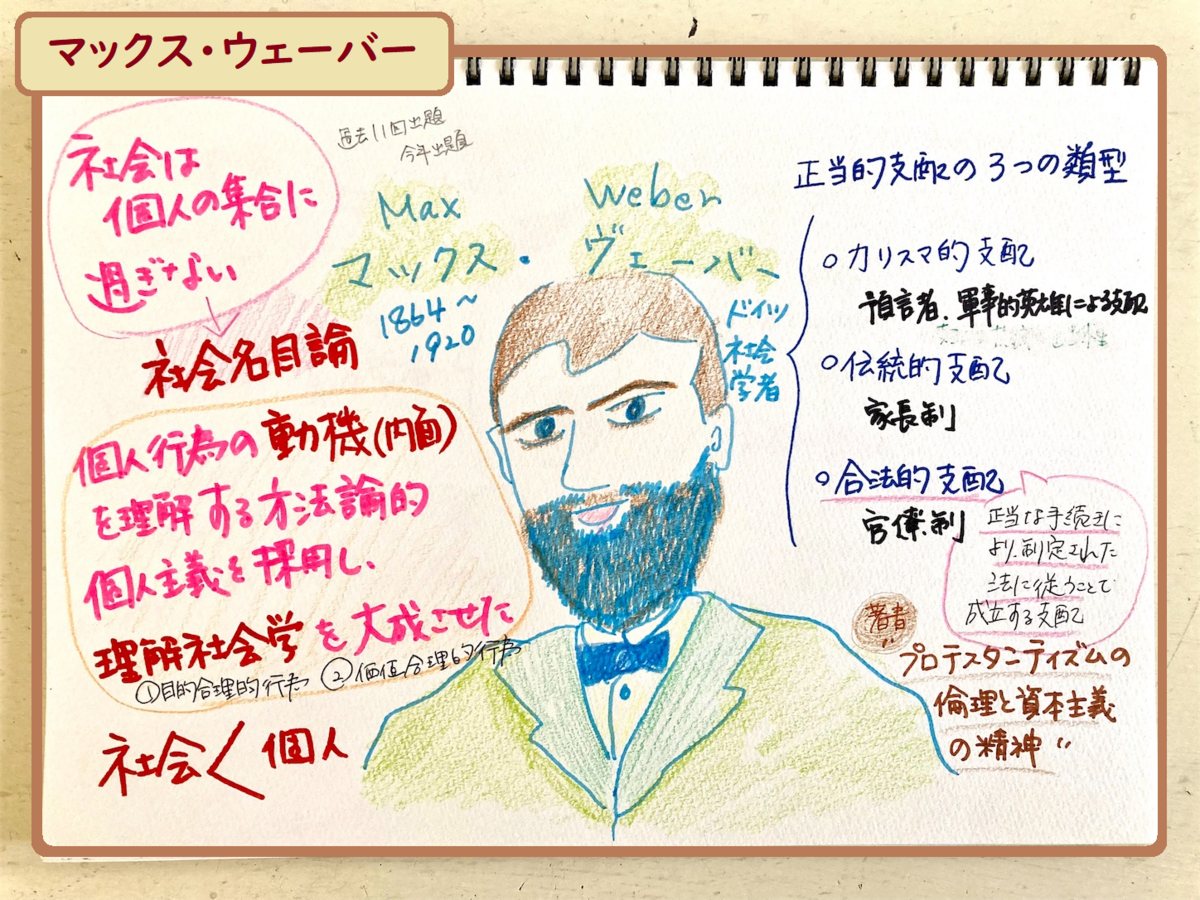 マックス・ウェーバー
過去11回出題
今年出題
社会は
個人の集合に
過ぎない
社会名目論
Max Weber
マックス・ヴェーバー
1864～
1920
ドイツ
社会
学者
個人行為の動機(内面)
を理解する方法論的
個人主義を採用し、
理解社会学を大成させた
①目的合理的行為 ②価値合理的行為
社会く個人
正当的支配の3つの類型
○カリスマ的支配
預言者、軍事的英雄による支配
○伝統的支配
家長制
○合法的支配
官僚制
正当な手続きに
より、制定された
法に従うことで
成立する支配
著書
"プロテスタンティズムの
倫理と資本主義
の精神"